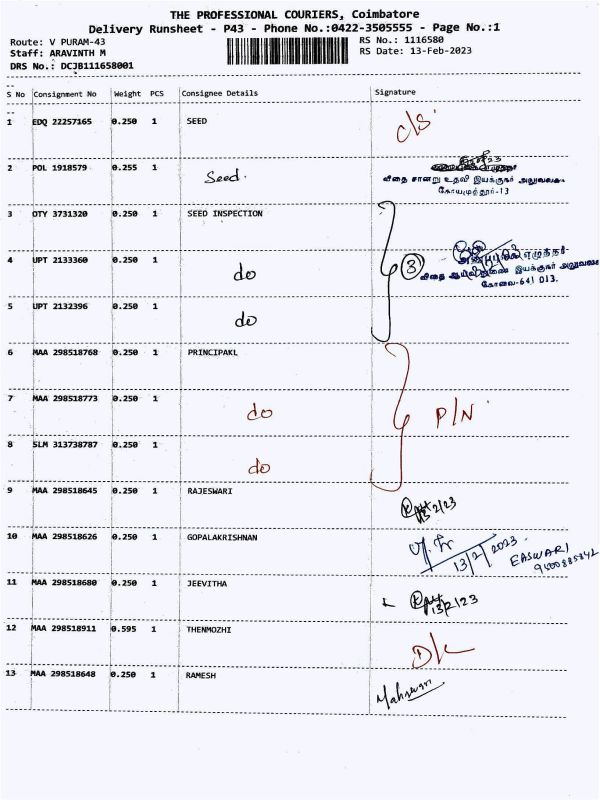 THE PROFESSIONAL COURIERS, Coimbatore
Delivery Runsheet - P43 - Phone No.:0422-3505555 - Page No.:1
Route: V PURAM-43
RS No.: 1116580
Staff: ARAVINTH M
RS Date: 13-Feb-2023
DRS No.: DCJB111658001
S No Consignment No Weight PCS Consignee Details Signature
1 EDQ 22257165 0.250 1 SEED C/S.
2 POL 1918579 0.255 1 Seed.
விதை சான்று உதவி இயக்குநர் அலுவலகம்
கோயமுத்தூர்-13
3 OTY 3731320 0.250 1 SEED INSPECTION
4 UPT 2133360 0.250 1 do 3
விதை ஆய்வு துணை இயக்குநர் அலுவலகம்
கோவை-641 013.
5 UPT 2132396 0.250 1 do
6 MAA 298518768 0.250 1 PRINCIPAKL
7 MAA 298518773 0.250 1 do P/N
8 SLM 313738787 0.250 1 do
9 MAA 298518645 0.250 1 RAJESWARI 13/2/23
10 MAA 298518626 0.250 1 GOPALAKRISHNAN 13/2/2023 EASWARI
11 MAA 298518680 0.250 1 JEEVITHA 13/2/23
12 MAA 298518911 0.595 1 THENMOZHI D/L
13 MAA 298518648 0.250 1 RAMESH